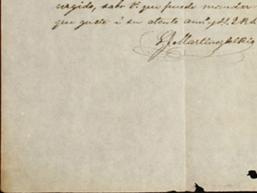 urgido, sabe V. que puede mandar
que guste á su atento amº. y S. S. Q. B.
J. Martinez del Rio